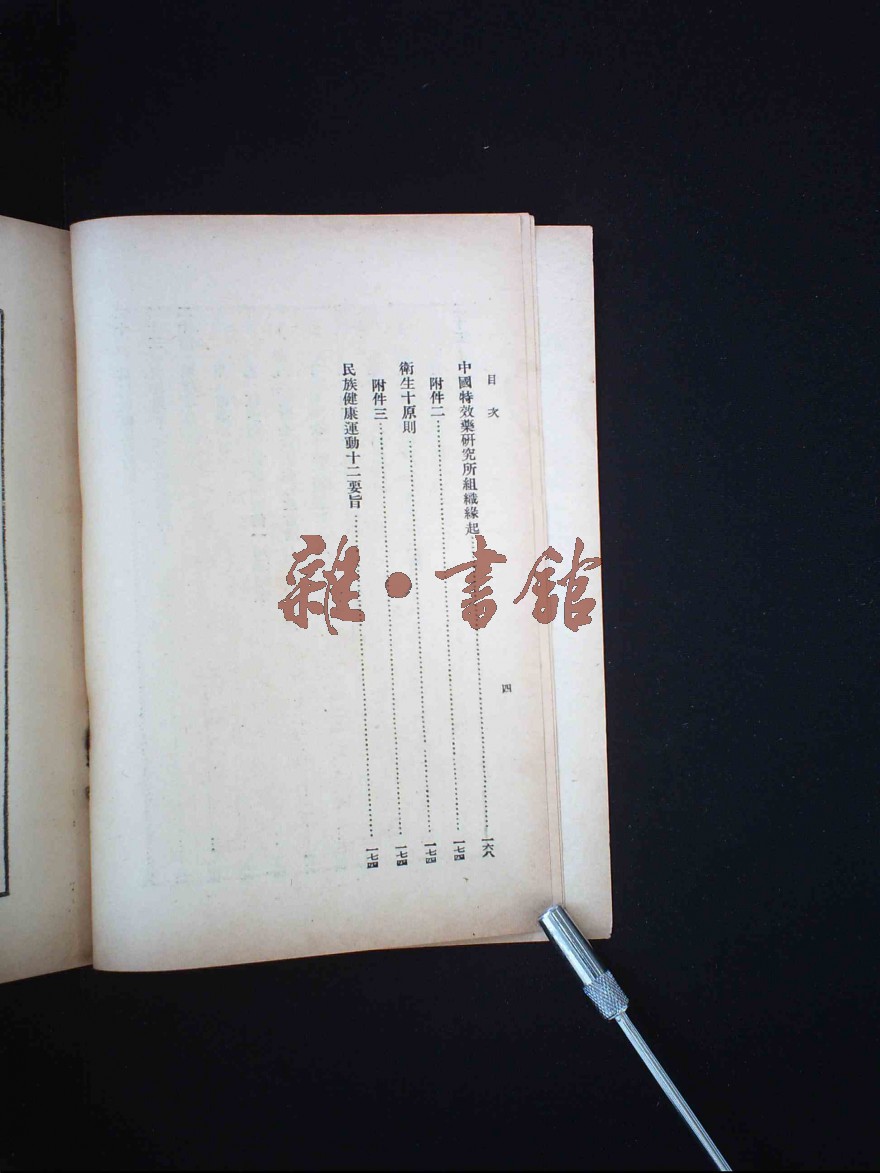 目次
四
中國特效藥研究所組織緣起………一六八
附件二………一七四
衛生十原則………一七四
附件三………一七四
民族健康運動十二要旨………一七四
雜·書館